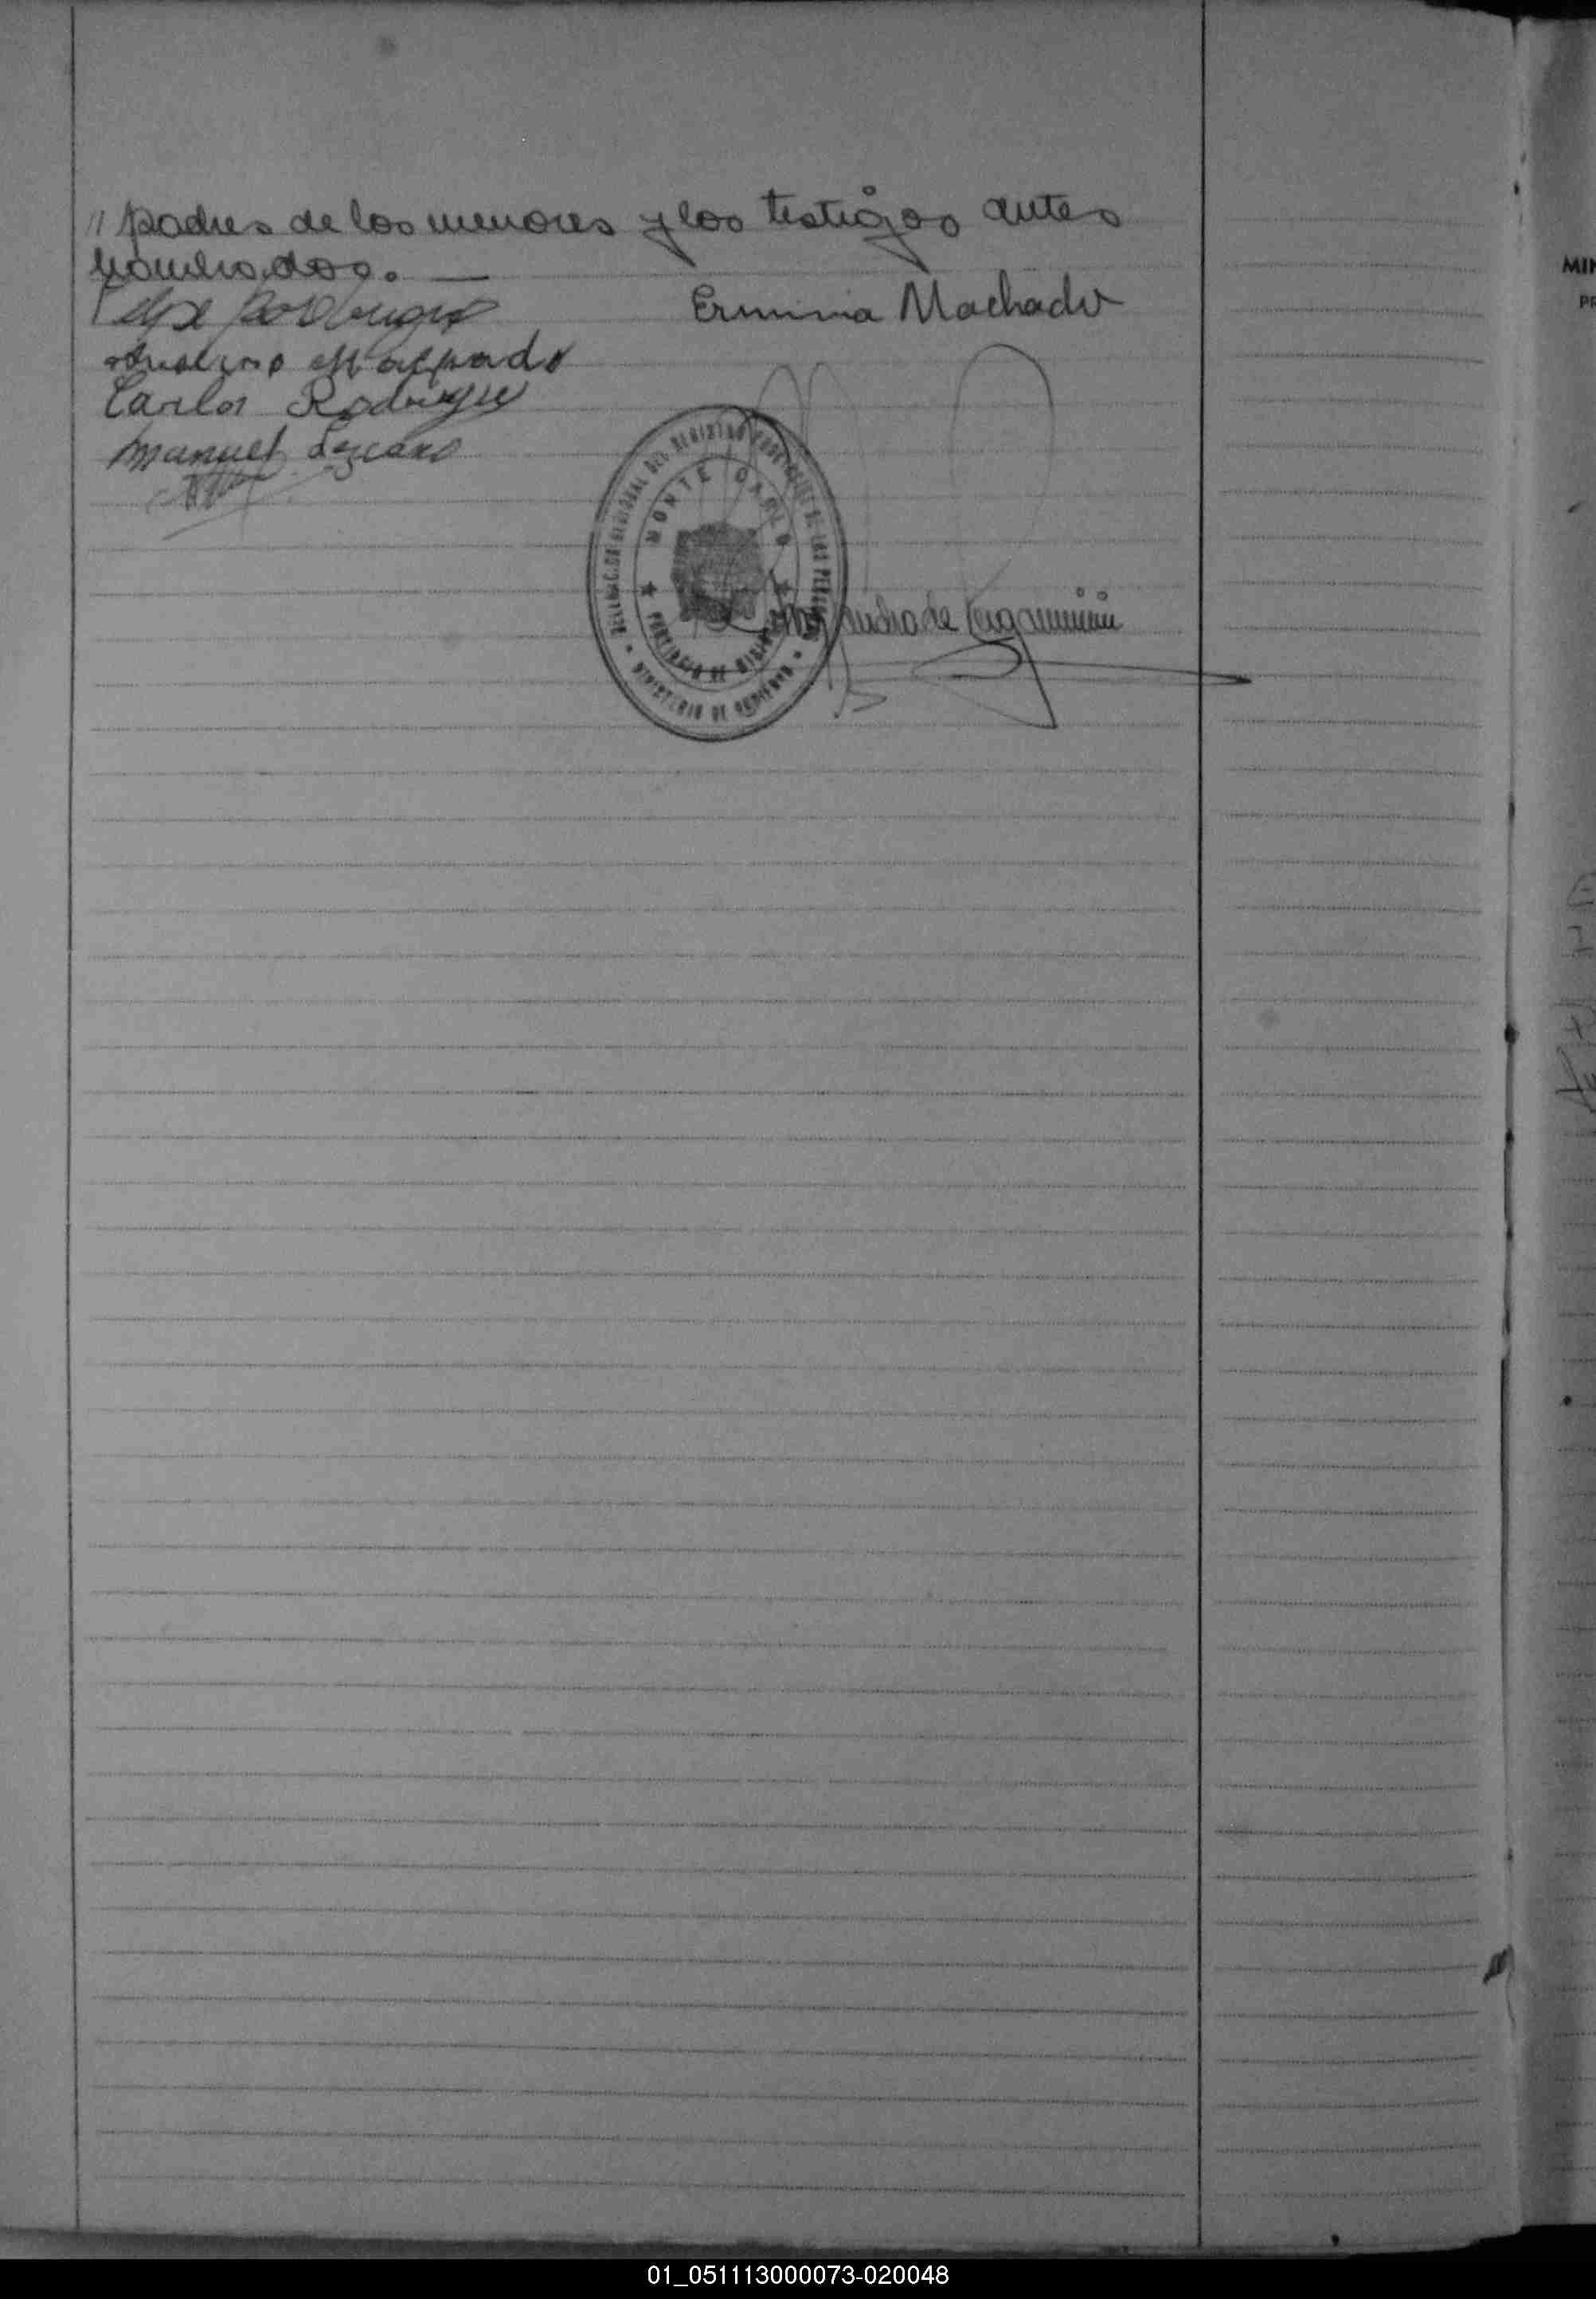 // padres de los menores y los testigos antes
nombrados. —
Felipe Rodriguez
Erminia Machado
Machado
Carlos Rodriguez
Manuel Lezcano
DELEGACION REGIONAL DEL REGISTRO PROVINCIAL DE LAS PERSONAS
MONTE CARLO
PROVINCIA DE MISIONES
MINISTERIO DE GOBIERNO
de
MIN
PR
01_051113000073-020048